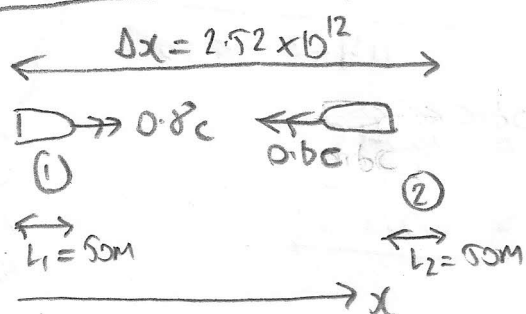 Δx = 2.52 × 10¹²
0.8c
0.6c
①
②
L₁ = 50m
L₂ = 50m
x